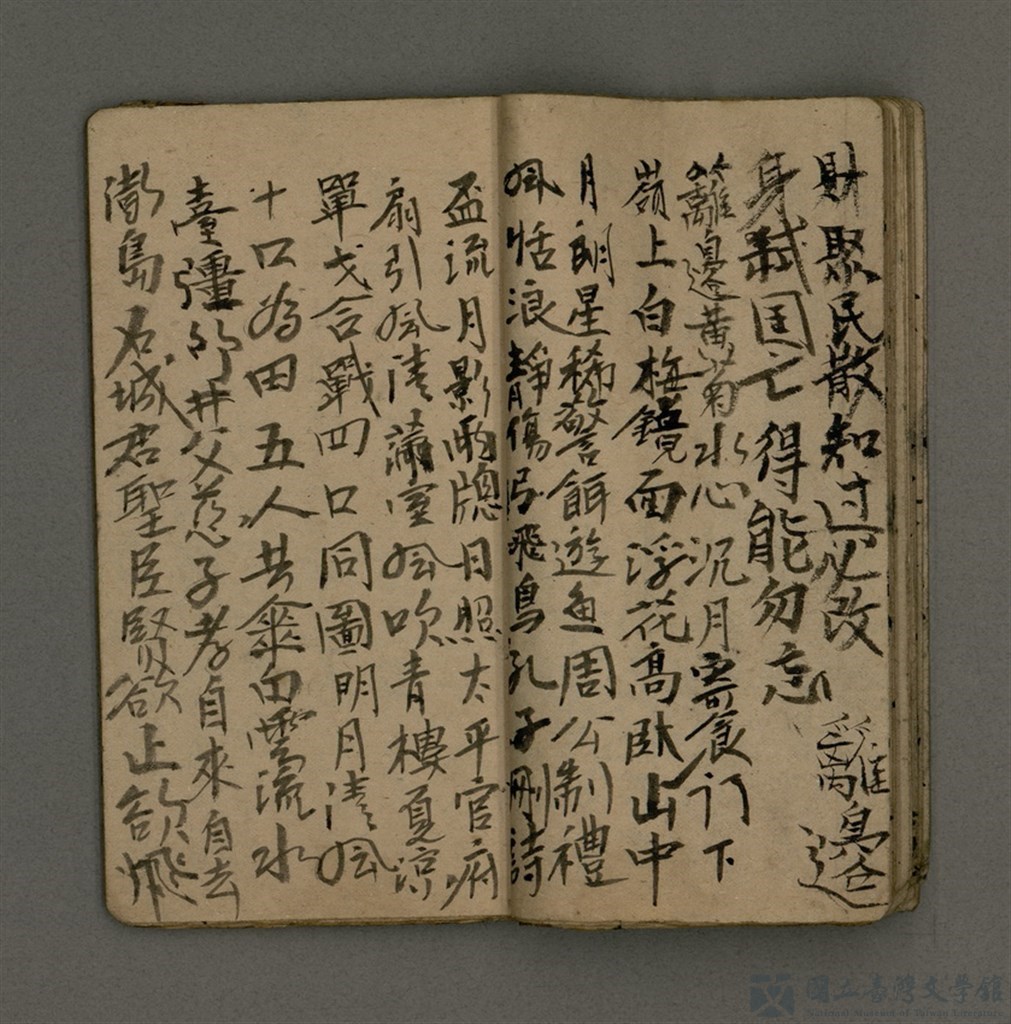 財聚民散知過必改
身弒国亡得能勿忘
籬邊
籬邊黃菊水心沉月寄食门下
嶺上白梅鏡面浮花高臥山中
月朗星稀警餌遊魚周公制禮
風恬浪靜傷弓飛鳥孔子刪詩
盃流月影兩牕月照太平官府
扇引風清滿室風吹青樓夏涼
單戈合戰四口同圖明月清風
十口為田五人共傘田雲流水
臺彊 井父慈子孝自來自去
澎島石城君聖臣賢欲止欲飛
國立臺灣文學館
National Museum of Taiwan Literature